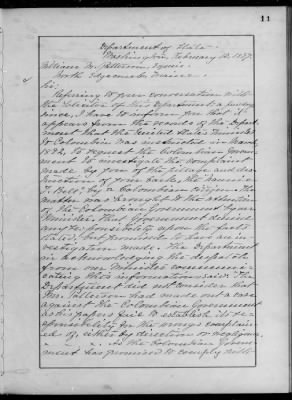 11
Department of State.
Washington, February 12, 1887.
William W. Patterson, Esquire
North Edgecomb, Maine.
Sir:
Referring to your conversation with
the Solicitor of this Department a few days
since, I have to inform you that it
appears from the records of the Depart-
ment that the United States Minister
to Colombia was instructed in March,
to request the Colombian Govern-
ment to investigate the complaint
made by you of the pillage and des-
truction of your bark, the
by a Colombian citizen. The
matter was brought to the attention
of the Colombian Government by our
Minister. That Government denied
any responsibility upon the facts
stated, but promised to have an in-
vestigation made. The Department
in acknowledging the despatch
from our Minister communi-
cating this information said: "The
Department did not consider that
Mr. Patterson had made out a case
against the Colombian Government
as his papers fail to establish its re-
sponsibility for the wrongs complain-
ed of, either by direction or negligence,
As the Colombian Govern-
ment has promised to comply with